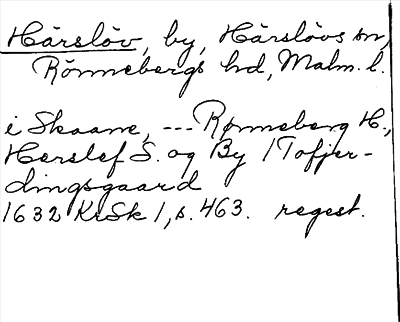 Härslöv, by, Härslövs sn,
Rönnebergs hd, Malm. l.
i Skaane, --- Rønneberg H.,
Herslef S. og By 1 Tofjer-
dingsgaard
1632 KrSk 1, s. 463. regest.